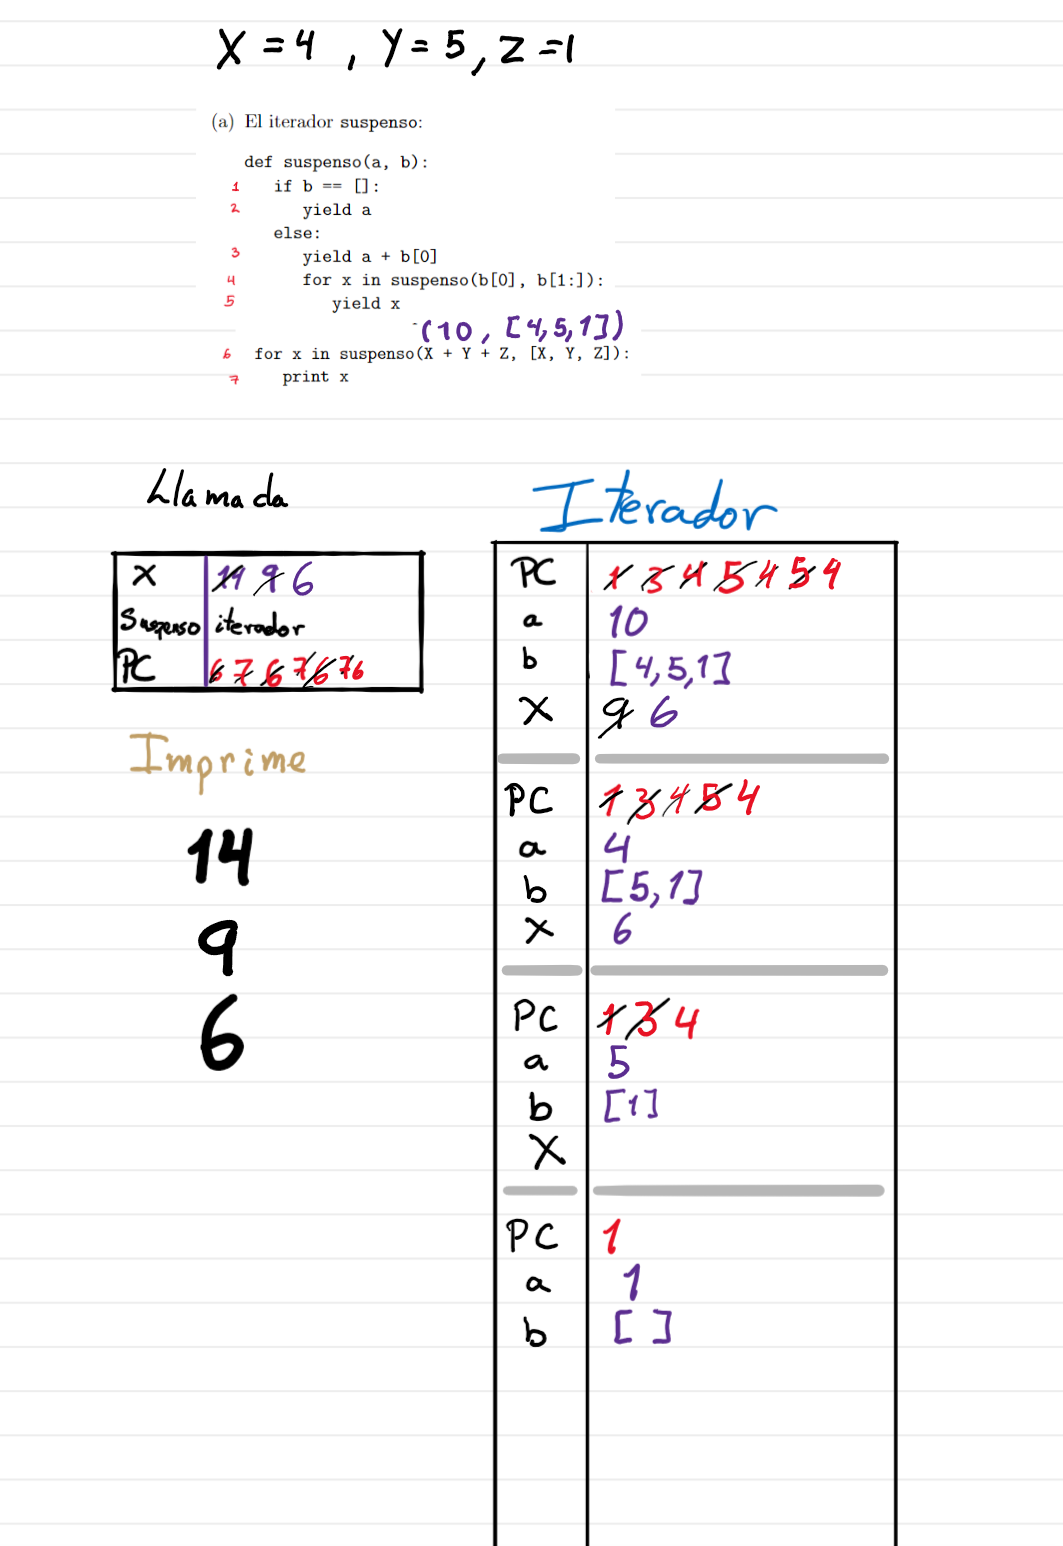 X = 4 , Y = 5, Z = 1
(a) El iterador suspenso:
def suspenso(a, b):
1 if b == []:
2 yield a
else:
3 yield a + b[0]
4 for x in suspenso(b[0], b[1:]):
5 yield x
(10, [4,5,1])
6 for x in suspenso(X + Y + Z, [X, Y, Z]):
7 print x
Llamada
X 14 9 6
Suspenso iterador
PC 6 7 6 7 6 7 6
Imprime
14
9
6
Iterador
PC 1 3 4 5 4 5 4
a 10
b [4,5,1]
X 9 6
PC 1 3 4 5 4
a 4
b [5,1]
X 6
PC 1 3 4
a 5
b [1]
X
PC 1
a 1
b [ ]